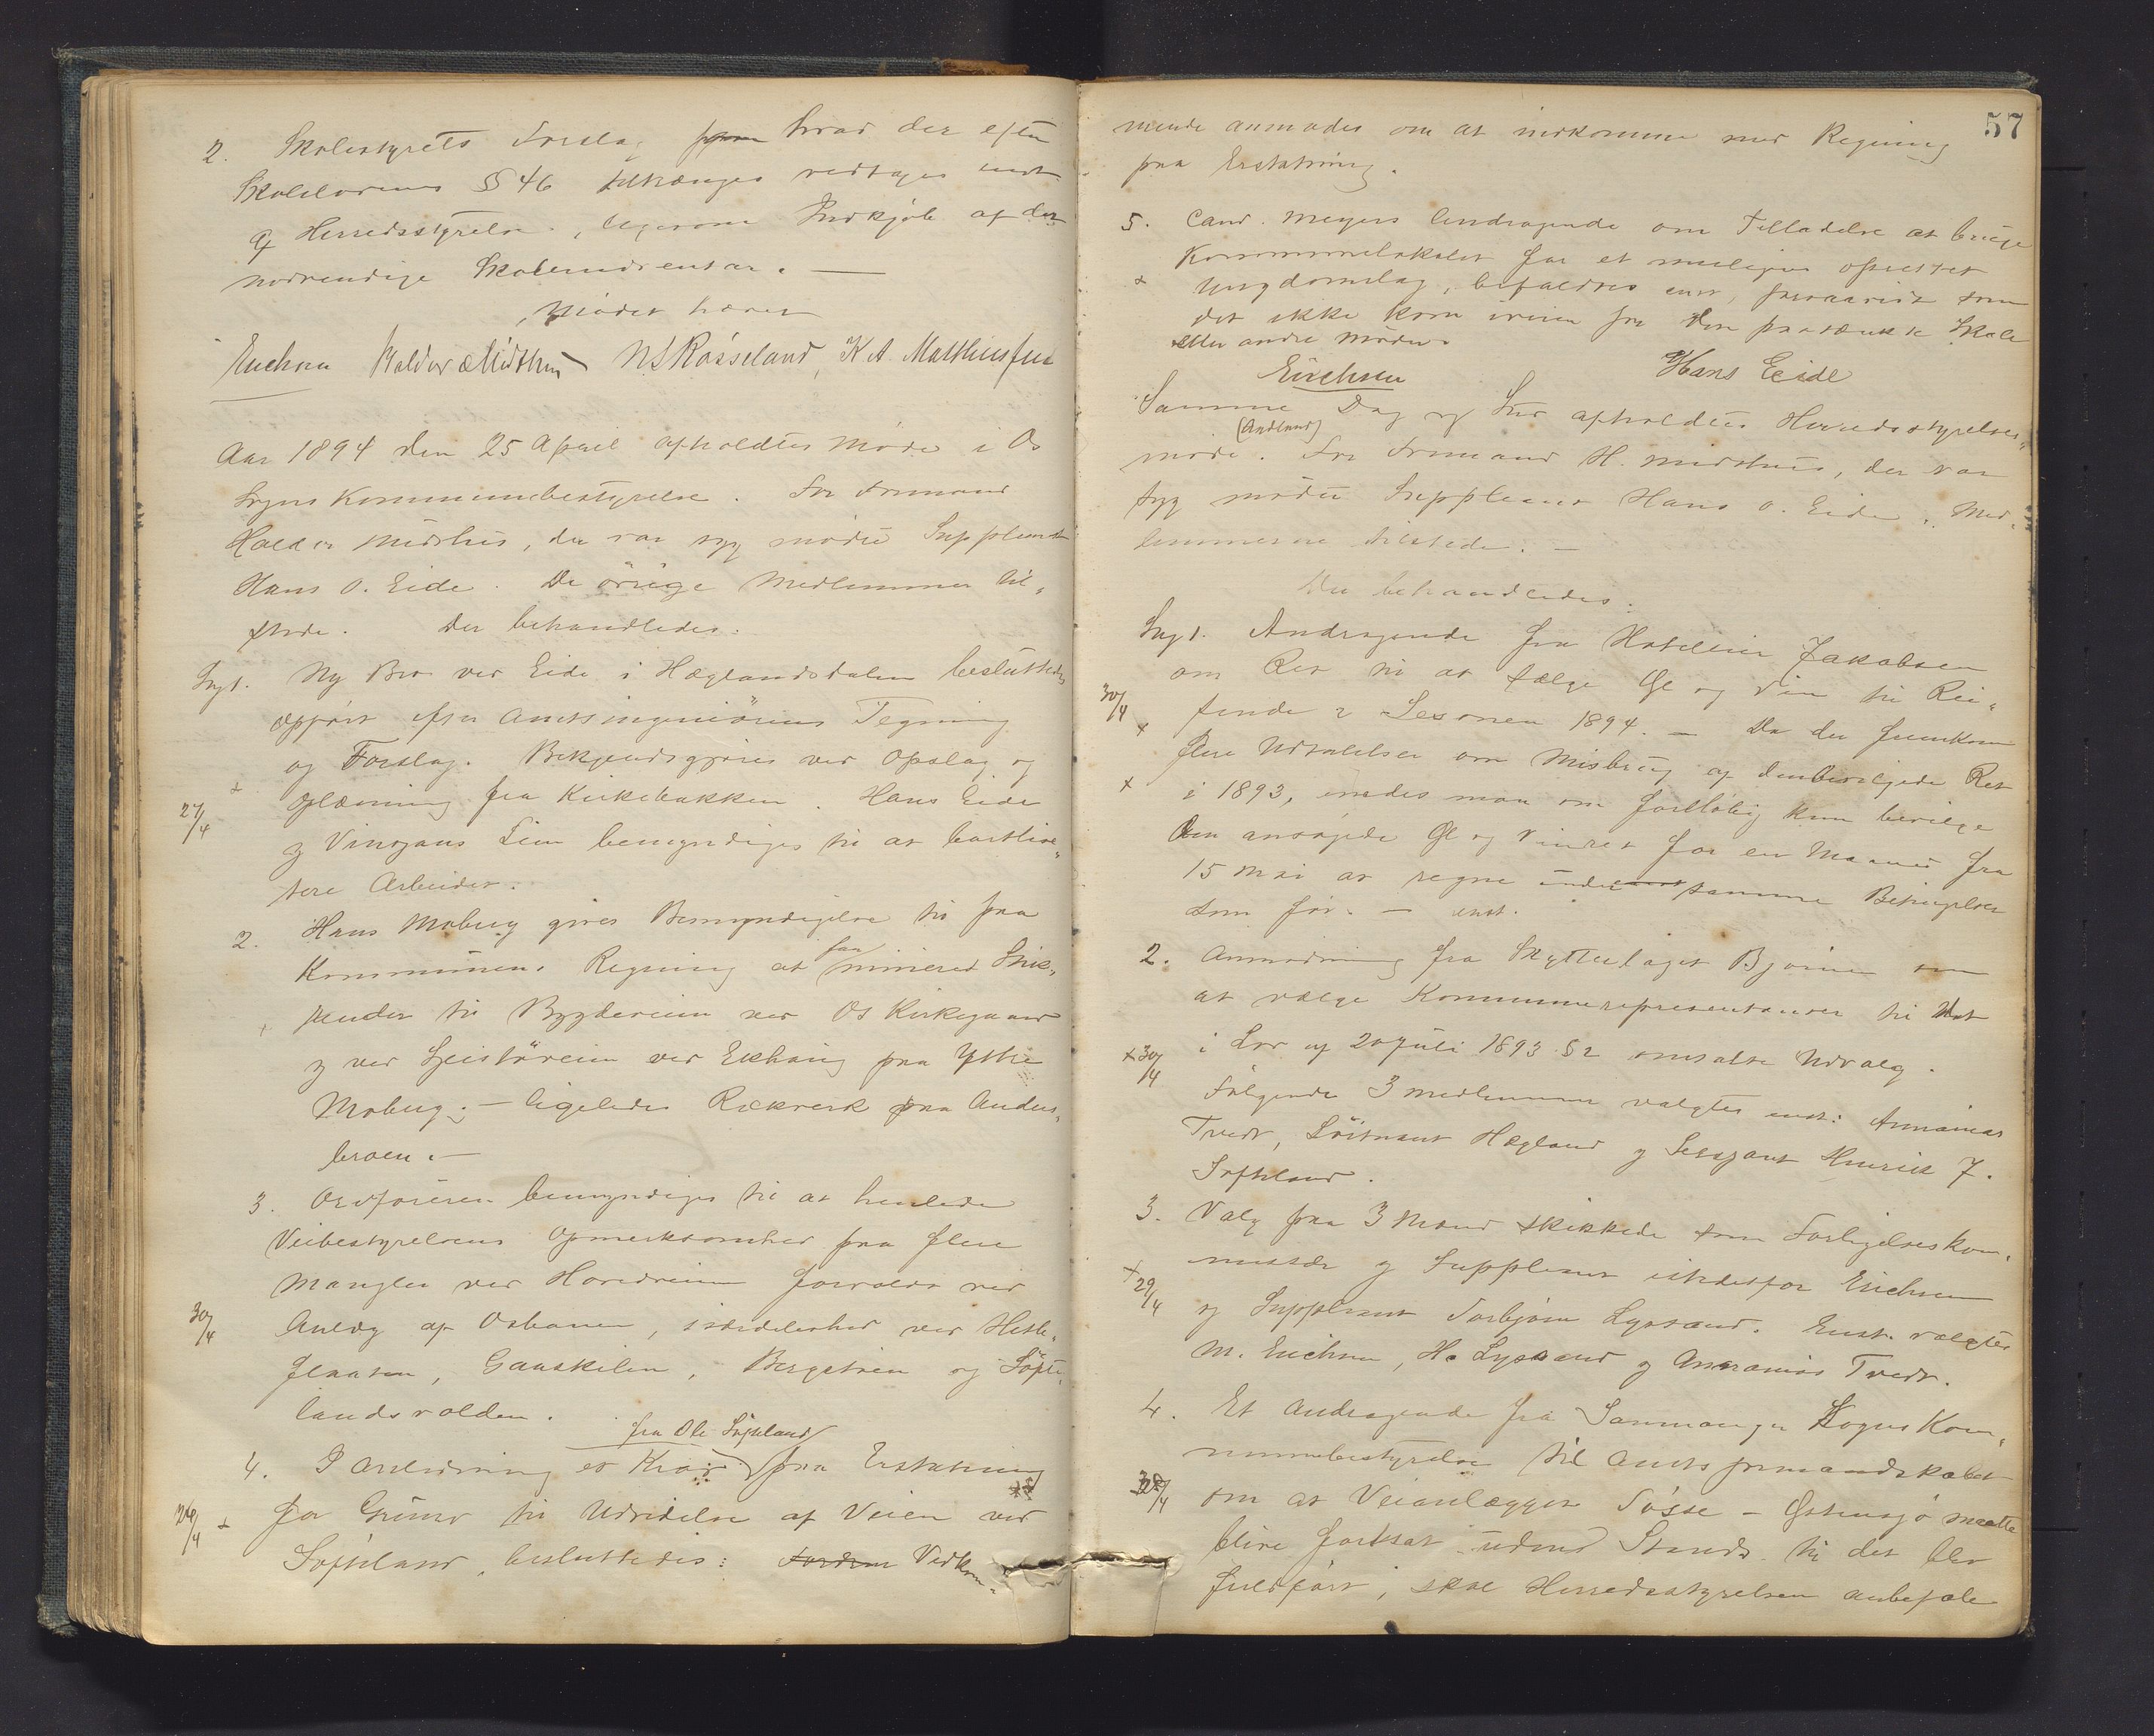 2. Skolestyrets Forslag paa hvad der efter
Skolelovens §§ 46 tiltrænges vedtages enst.
af Herredsstyrelsen, ligesom Indkjöb af det
nødvendige Skoleinventar. —
Mödet hævet
Erichsen Haldor Midthus N L Røsseland, K A Matthiesen
Aar 1894 den 25 April afholdtes Möde i Os
Sogns Kommunebestyrelse. For Formand
Haldor Midthus, der var syg mödte Suppleant
Hans O. Eide. De övrige Medlemmer til-
stede. Der behandledes:
Sag 1. Ny Bro ved Eide i Hæglandsdalen besluttedes
opfört efter Amtsingeniörens Tegning
og Forslag. Bekjendtgjöres ved Opslag og
27/4 + Oplæsning fra Kirkebakken. Hans Eide
og Vinzans Lien bemyndiges til at bortlici-
tere Arbeidet.
2. Hans Moberg gives Bemyndigelse til paa
Kommunens Regning at faa mineret Stik-
+ render til Bygdeveien ved Os Kirkegaard
og ved Leistöveien ved Ekhaug paa Ytre
Moberg; — ligeledes Rækverk paa Anders-
broen. —
3. Ordföreren bemyndiges til at henlede
Veibestyrelsens Opmerksomhed paa flere
Mangler ved Hovedveien forvoldt ved
30/4 Anlæg af Osbanen, isærdeleshed ved Hetle-
flaaten, Gaaskilen, Bergstöen og Söfte-
landsvolden.
fra Ole Söfteland
4. I Anledning et Krav paa Erstatning
26/4 + for Grund til Udvidelse af Veien ved
Softeland, besluttedes: Fordrem Vedkom-
57
mende anmodes om at indkomme med Regning
paa Erstatning.
5. Cand. Meyers Andragende om Tilladelse at bruge
Kommunelokalet for et muligens oprettet
+ Ungdomslag, bifaldtes enst, forsaavidt som
det ikke kom iveien for den paatænkte Skole
eller andre Møder.
Erichsen Hans Eide
Samme Dag og Sted afholdtes Herredsstyrelses-
(Andland)
möde. For Formand H. Midthus, der var
syg mödte Suppleant Hans O. Eide. Med-
lemmerne tilstede. —
Der behandledes:
Sag 1. Andragende fra Hotelleier Jakobsen
om Ret til at sælge Öl og Vin til Rei-
30/4 sende i Sesonen 1894. — Da der fremkom
+ flere Udtalelser om Misbrug af den bevilgede Ret
+ i 1893, enedes man om forelöbig kun bevilge
den ansögede Öl og Vinret for en Maaned fra
15 Mai at regne under samme Betingelser
som för. — enst.
2. Anmodning fra Skytterlaget Bjørnen om
at vælge Kommunerepresentanter til det
+ 30/4 i Lov af 20 Juli 1893 § 2 omtalte Udvalg.
Fölgende 3 Medlemmer valgtes enst: Annanias
Tvedt, Löitnant Hegland og Sersjant Henrik J.
Softeland.
3. Valg paa 3 Mænd skikkede som Forligelseskom-
missær og Suppleant istedetfor Erichsen
+ 29/4 og Suppleant Torbjørn Lyssand. Enst. valgtes
M. Erichsen, H. Lyssand og Annanias Tvedt.
4. Et Andragende fra Samnanger Sogns Kom-
munebestyrelse til Amtsformandskabet
30/4 om at Veianlægget Tösse – Östensjö maatte
blive fortsat uden Stands til det blev
fuldfört, skal Herredsstyrelsen anbefale